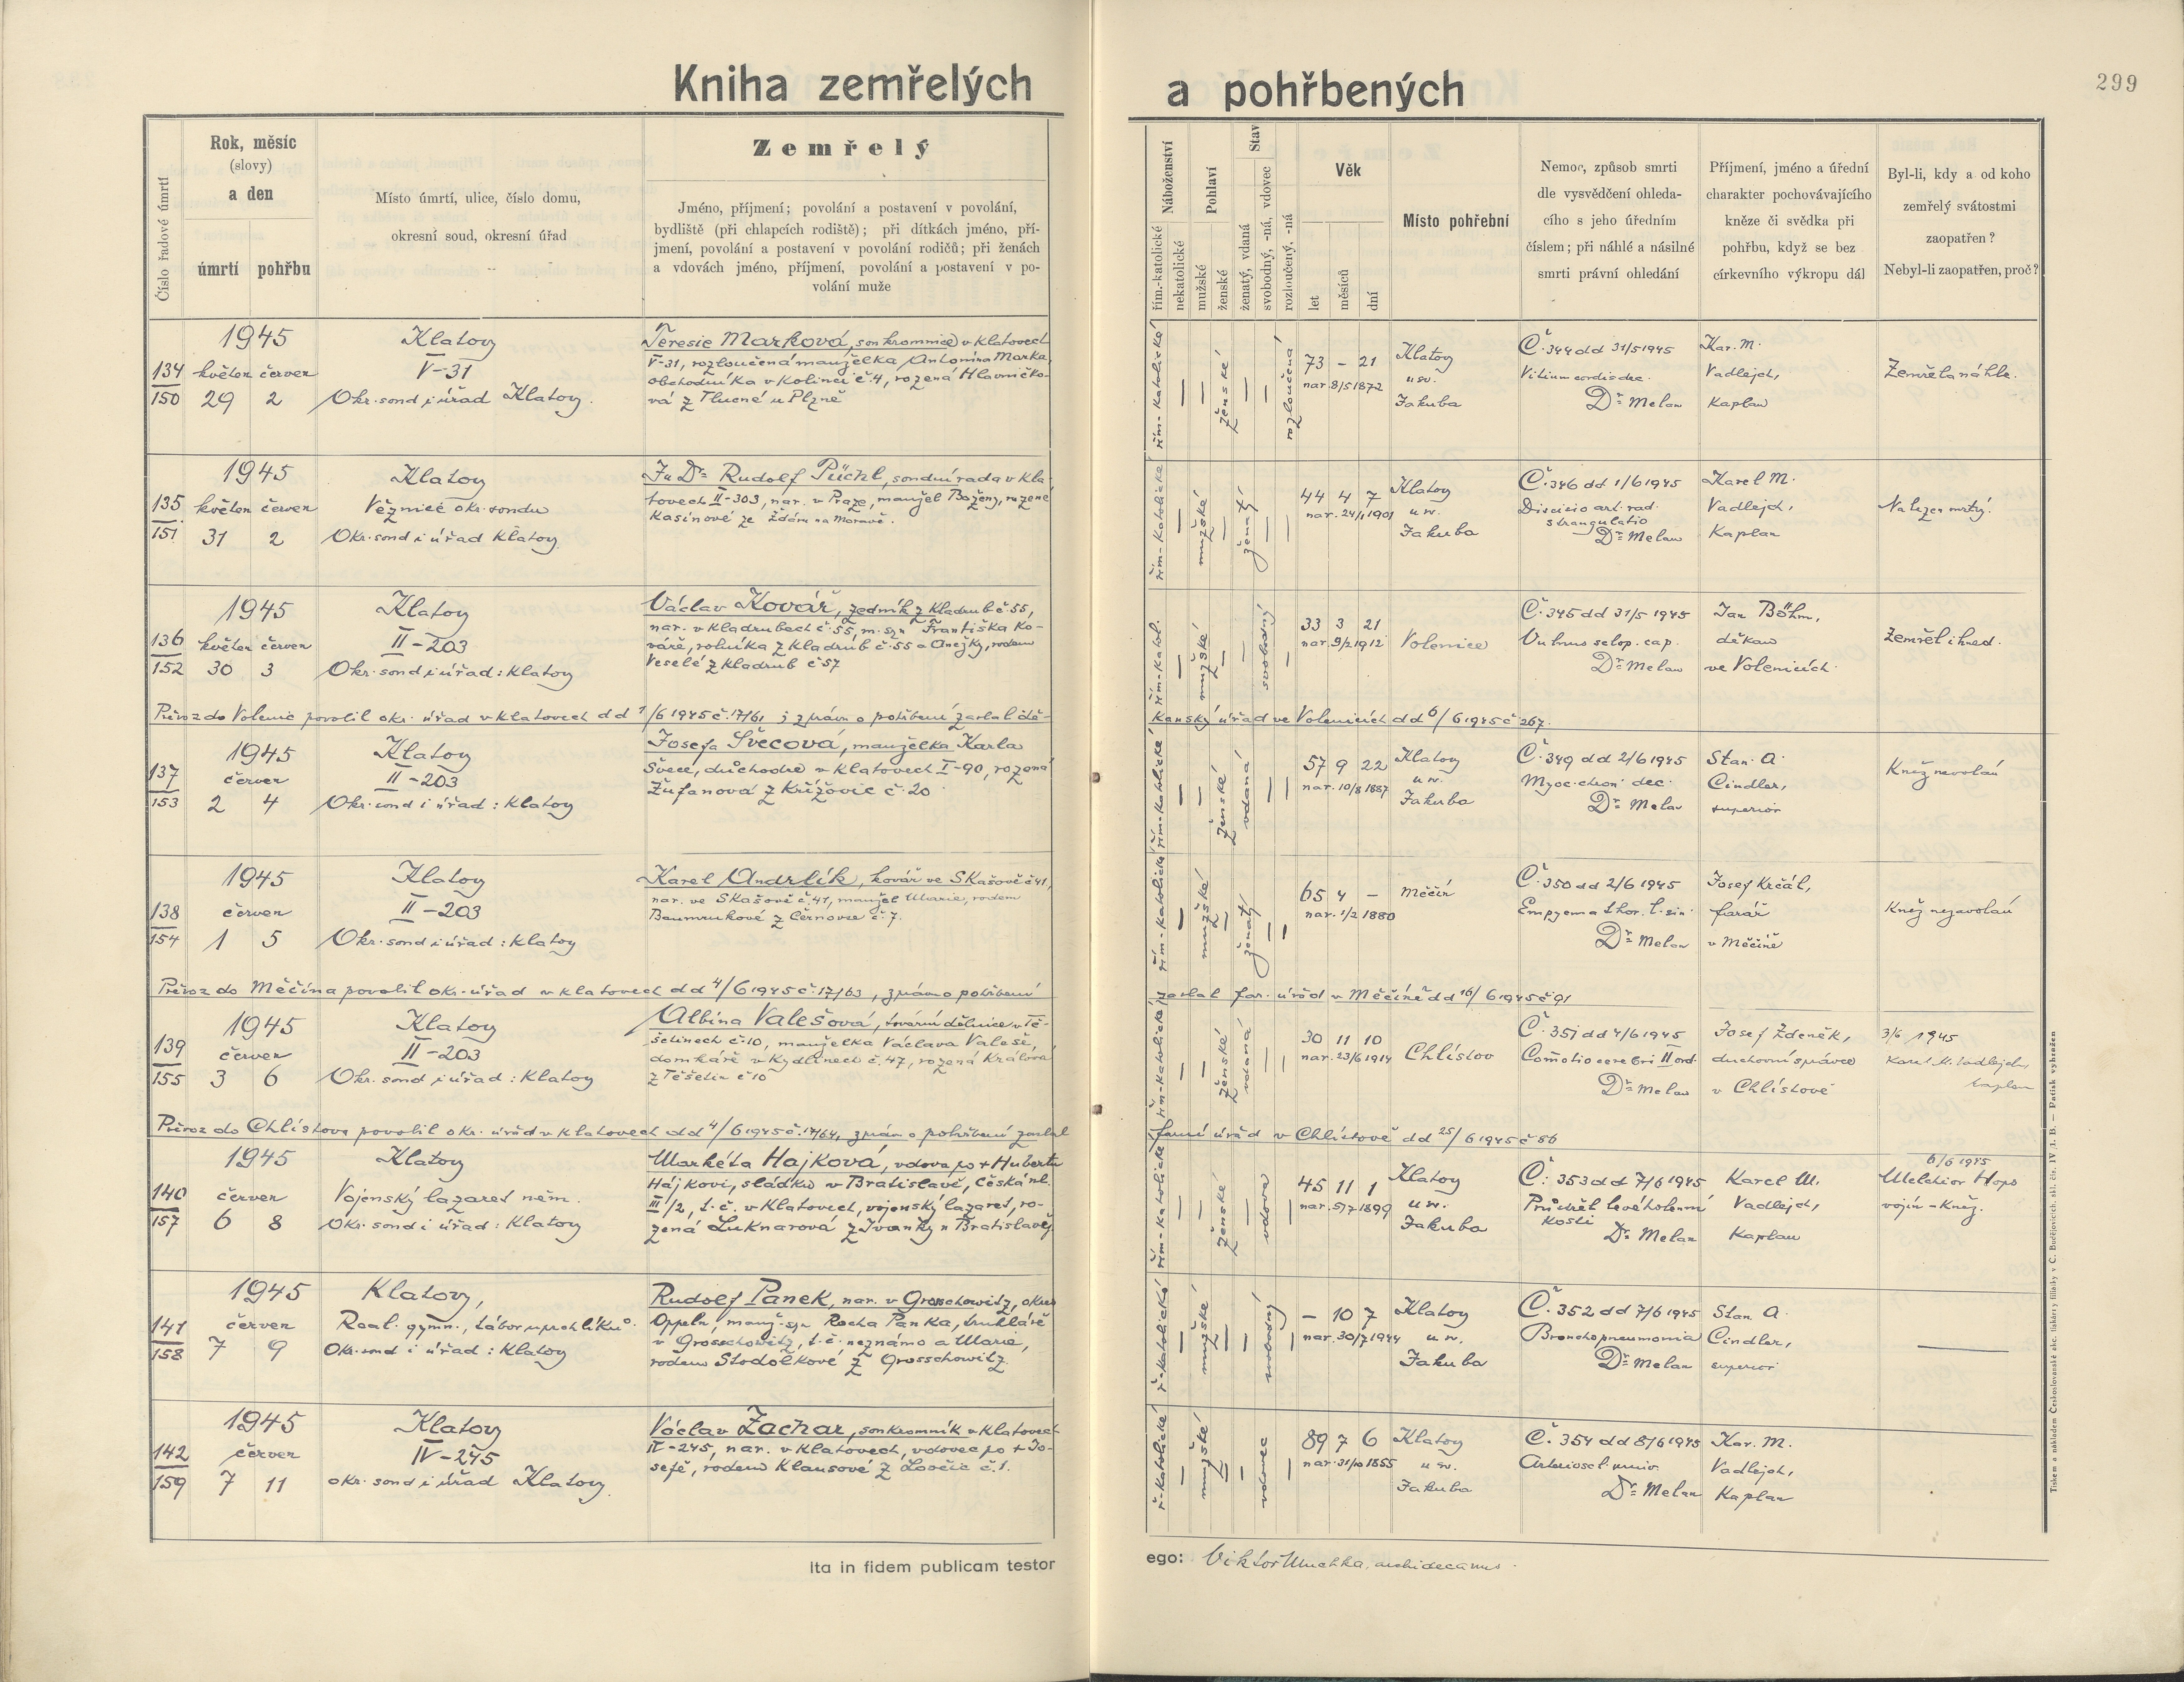 Kniha zemřelých a pohřbených
299
Číslo řadové úmrtí
Rok, měsíc
(slovy)
a den
úmrtí pohřbu
Místo úmrtí, ulice, číslo domu,
okresní soud, okresní úřad
Zemřelý
Jméno, příjmení; povolání a postavení v povolání,
bydliště (při chlapcích rodiště); při dítkách jméno, pří-
jmení, povolání a postavení v povolání rodičů; při ženách
a vdovách jméno, příjmení, povolání a postavení v po-
volání muže
Náboženství
řím.-katolické
nekatolické
Pohlaví
mužské
ženské
Stav
ženatý, vdaná
svobodný, -ná, vdovec
rozloučený, -ná
Věk
let
měsíců
dní
Místo pohřební
Nemoc, způsob smrti
dle vysvědčení ohleda-
cího s jeho úředním
číslem; při náhlé a násilné
smrti právní ohledání
Příjmení, jméno a úřední
charakter pochovávajícího
kněze či svědka při
pohřbu, když se bez
církevního výkropu dál
Byl-li, kdy a od koho
zemřelý svátostmi
zaopatřen?
Nebyl-li zaopatřen, proč?
134
150
1945
květen červen
29 2
Klatovy
V-31
Okr. soud i úřad Klatovy.
Teresie Marková, soukromnice v Klatovech
V-31, rozloučená manželka Antonína Marka,
obchodníka v Kolinci č 4, rozená Hlavničko-
vá z Tlucné u Plzně
řím-katolické
—
—
ženské
—
—
rozloučená
73 – 21
nar 8/5 1872
Klatovy
u sv.
Jakuba
Č. 344 dd 31/5 1945
Vitium cordis dec.
Dr. Melan
Kar. M.
Vadlejch,
kaplan
Zemřela náhle.
135
151
1945
květen červen
31 2
Klatovy
Věznice okr. soudu
Okr. soud i úřad Klatovy
JuDr. Rudolf Püchl, soudní rada v Kla-
tovech II-303, nar. v Praze, manžel Boženy, rozené
Kasínové ze Žďáru na Moravě.
řím-katolické
—
mužské
—
ženatý
—
—
44 4 7
nar. 24/1 1901
Klatovy
u sv.
Jakuba
Č. 346 dd 1/6 1945
Discisio art. rad.
strangulatio
Dr. Melan
Karel M.
Vadlejch,
Kaplan
Nalezen mrtvý.
136
152
1945
květen červen
30 3
Klatovy
II-203
Okr. soud i úřad: Klatovy
Václav Kovář, zedník z Kladrub č 55,
nar. v Kladrubech č. 55, m. syn Františka Ko-
váře, rolníka z Kladrub č. 55 a Anežky, rodem
Veselé z Kladrub č 57
řím-katol.
—
mužské
—
—
svobodný
—
33 3 21
nar. 9/2 1912
Volenice
Č. 345 dd 31/5 1945
Vulnus sclop. cap.
Dr. Melan
Jan Böhm,
děkan
ve Volenicích.
Zemřel ihned.
Převoz do Volenic povolil okr. úřad v Klatovech dd 1/6 1945 č. 17/61 ; zprávu o pohřbení zaslal dě-
kanský úřad ve Volenicích dd 6/6 1945 č 267.
137
153
1945
červen
2 4
Klatovy
II-203
Okr. soud i úřad: Klatovy
Josefa Švecová, manželka Karla
Švece, důchodce v Klatovech I-90, rozená
Žufanová z Křížovic č. 20
řím-katolické
—
—
ženské
vdaná
—
—
57 9 22
nar. 10/8 1887
Klatovy
u sv.
Jakuba
Č. 349 dd 2/6 1945
Myoc. chron. dec.
Dr. Melan
Stan. A.
Cindler,
superior
Kněz nevolán
138
154
1945
červen
1 5
Klatovy
II-203
Okr. soud i úřad: Klatovy
Karel Andrlík, kovář ve Skašově č 41,
nar. ve Skašově č. 41, manžel Marie, rodem
Baumrukové z Černovic č. 7.
řím-katolické
—
mužské
—
ženatý
—
—
65 4 –
nar. 1/2 1880
Měčín
Č. 350 dd 2/6 1945
Empyema thor. l. sin.
Dr. Melan
Josef Krčál,
farář
v Měčíně
Kněz nezavolán
Převoz do Měčína povolil okr. úřad v Klatovech dd 4/6 1945 č. 17/63, zprávu o pohřbení
zaslal far. úřad v Měčíně dd 16/6 1945 č 91
139
155
1945
červen
3 6
Klatovy
II-203
Okr. soud i úřad: Klatovy
Albína Valešová, tovární dělnice v Tě-
šetinech č. 10, manželka Václava Valeše,
domkáře v Kydlinech č. 47, rozená Králová
z Těšetin č 10
řím-katolické
—
—
ženské
vdaná
—
—
30 11 10
nar. 23/6 1914
Chlístov
Č. 351 dd 4/6 1945
Comotio cerebri II ord.
Dr. Melan
Josef Zdeněk,
duchovní správce
v Chlístově
3/6 1945
Karel M. Vadlejch,
kaplan
Převoz do Chlístova povolil okr. úřad v Klatovech dd 4/6 1945 č. 17/64, zprávu o pohřbení zaslal
farní úřad v Chlístově dd 25/6 1945 č 86
140
157
1945
červen
6 8
Klatovy
Vojenský lazaret něm.
Okr. soud i úřad: Klatovy
Markéta Hajková, vdova po + Hubertu
Hájkovi, sládku v Bratislavě, Česká ul.
III/2, t. č. v Klatovech, vojenský lazaret, ro-
zená Luknarová z Ivanky u Bratislavy
řím-katolické
—
—
ženské
—
vdova
—
45 11 1
nar. 5/7 1899
Klatovy
u sv.
Jakuba
Č. 353 dd 7/6 1945
Průstřel levé holenní
kosti
Dr. Melan
Karel M.
Vadlejch,
Kaplan
6/6 1945
Melchior Hops
vojín - kněz.
141
158
1945
červen
7 9
Klatovy,
Real. gymn., tábor uprchlíků.
Okr. soud i úřad: Klatovy
Rudolf Panek, nar. v Grosschowitz, okres
Oppeln, manž. syn Rocha Panka, truhláře
v Grosschowitz, t. č. neznámo a Marie,
rodem Stodolkové z Grosschowitz.
ř-katolické
—
mužské
—
—
svobodný
—
– 10 7
nar. 30/7 1944
Klatovy
u sv.
Jakuba
Č. 352 dd 7/6 1945
Bronchopneumonia
Dr. Melan
Stan. A.
Cindler,
superior
—
142
159
1945
červen
7 11
Klatovy
IV-245
okr. soud i úřad Klatovy.
Václav Zachar, soukromník v Klatovech
IV-245, nar. v Klatovech, vdovec po + Jo-
sefě, rodem Klausové z Lovčic č. 1.
ř-katolické
—
mužské
—
—
vdovec
—
89 7 6
nar. 31/10 1855
Klatovy
u sv.
Jakuba
Č. 354 dd 8/6 1945
Arterioscl. univ.
Dr. Melan
Kar. M.
Vadlejch,
Kaplan
Ita in fidem publicam testor
ego: Viktor archidecanus.
Tiskem a nákladem Československé akc. tiskárny filiálky v Č. Budějovicích. skl. čís. IV./1. B. — Patisk vyhražen